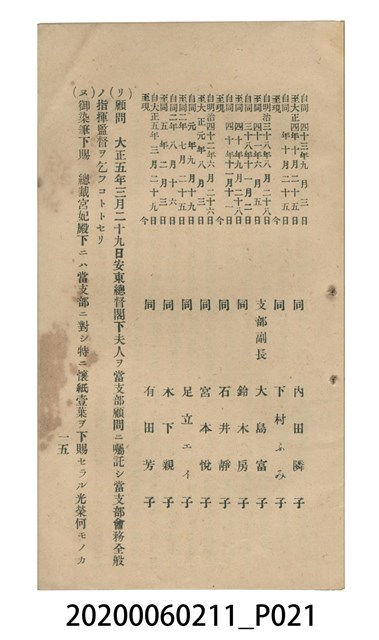 自同四十三年九月三日
至大正四年十月二十五日
同 內田隣子
自同四年十月二十五日
至現今
同 下村ふみ子
自明治三十八年八月二十八日
至同四十一年六月五日
支部副長 大島富子
自同三十八年十一月一日
同 鈴木房子
自同四十年十一月十一日
同 石井靜子
自明治四十二年六月二十六日
至大正元年八月三日
同 宮本悅子
自同元年九月十九日
至同二年七月二十五日
同 足立エイ子
自同二年八月十六日
同 木下親子
自大正五年三月二十九日
至現今
同 有田芳子
(リ)顧問 大正五年三月二十九日安東總督閣下夫人ヲ當支部顧問ニ囑託シ當支部會務全般
ノ指揮監督ヲ乞フコトトセリ
(ヌ)御染筆下賜 總裁宮妃殿下ニハ當支部ニ對シ特ニ懷紙壹葉ヲ下賜セラル光榮何モノカ
一五
20200060211_P021